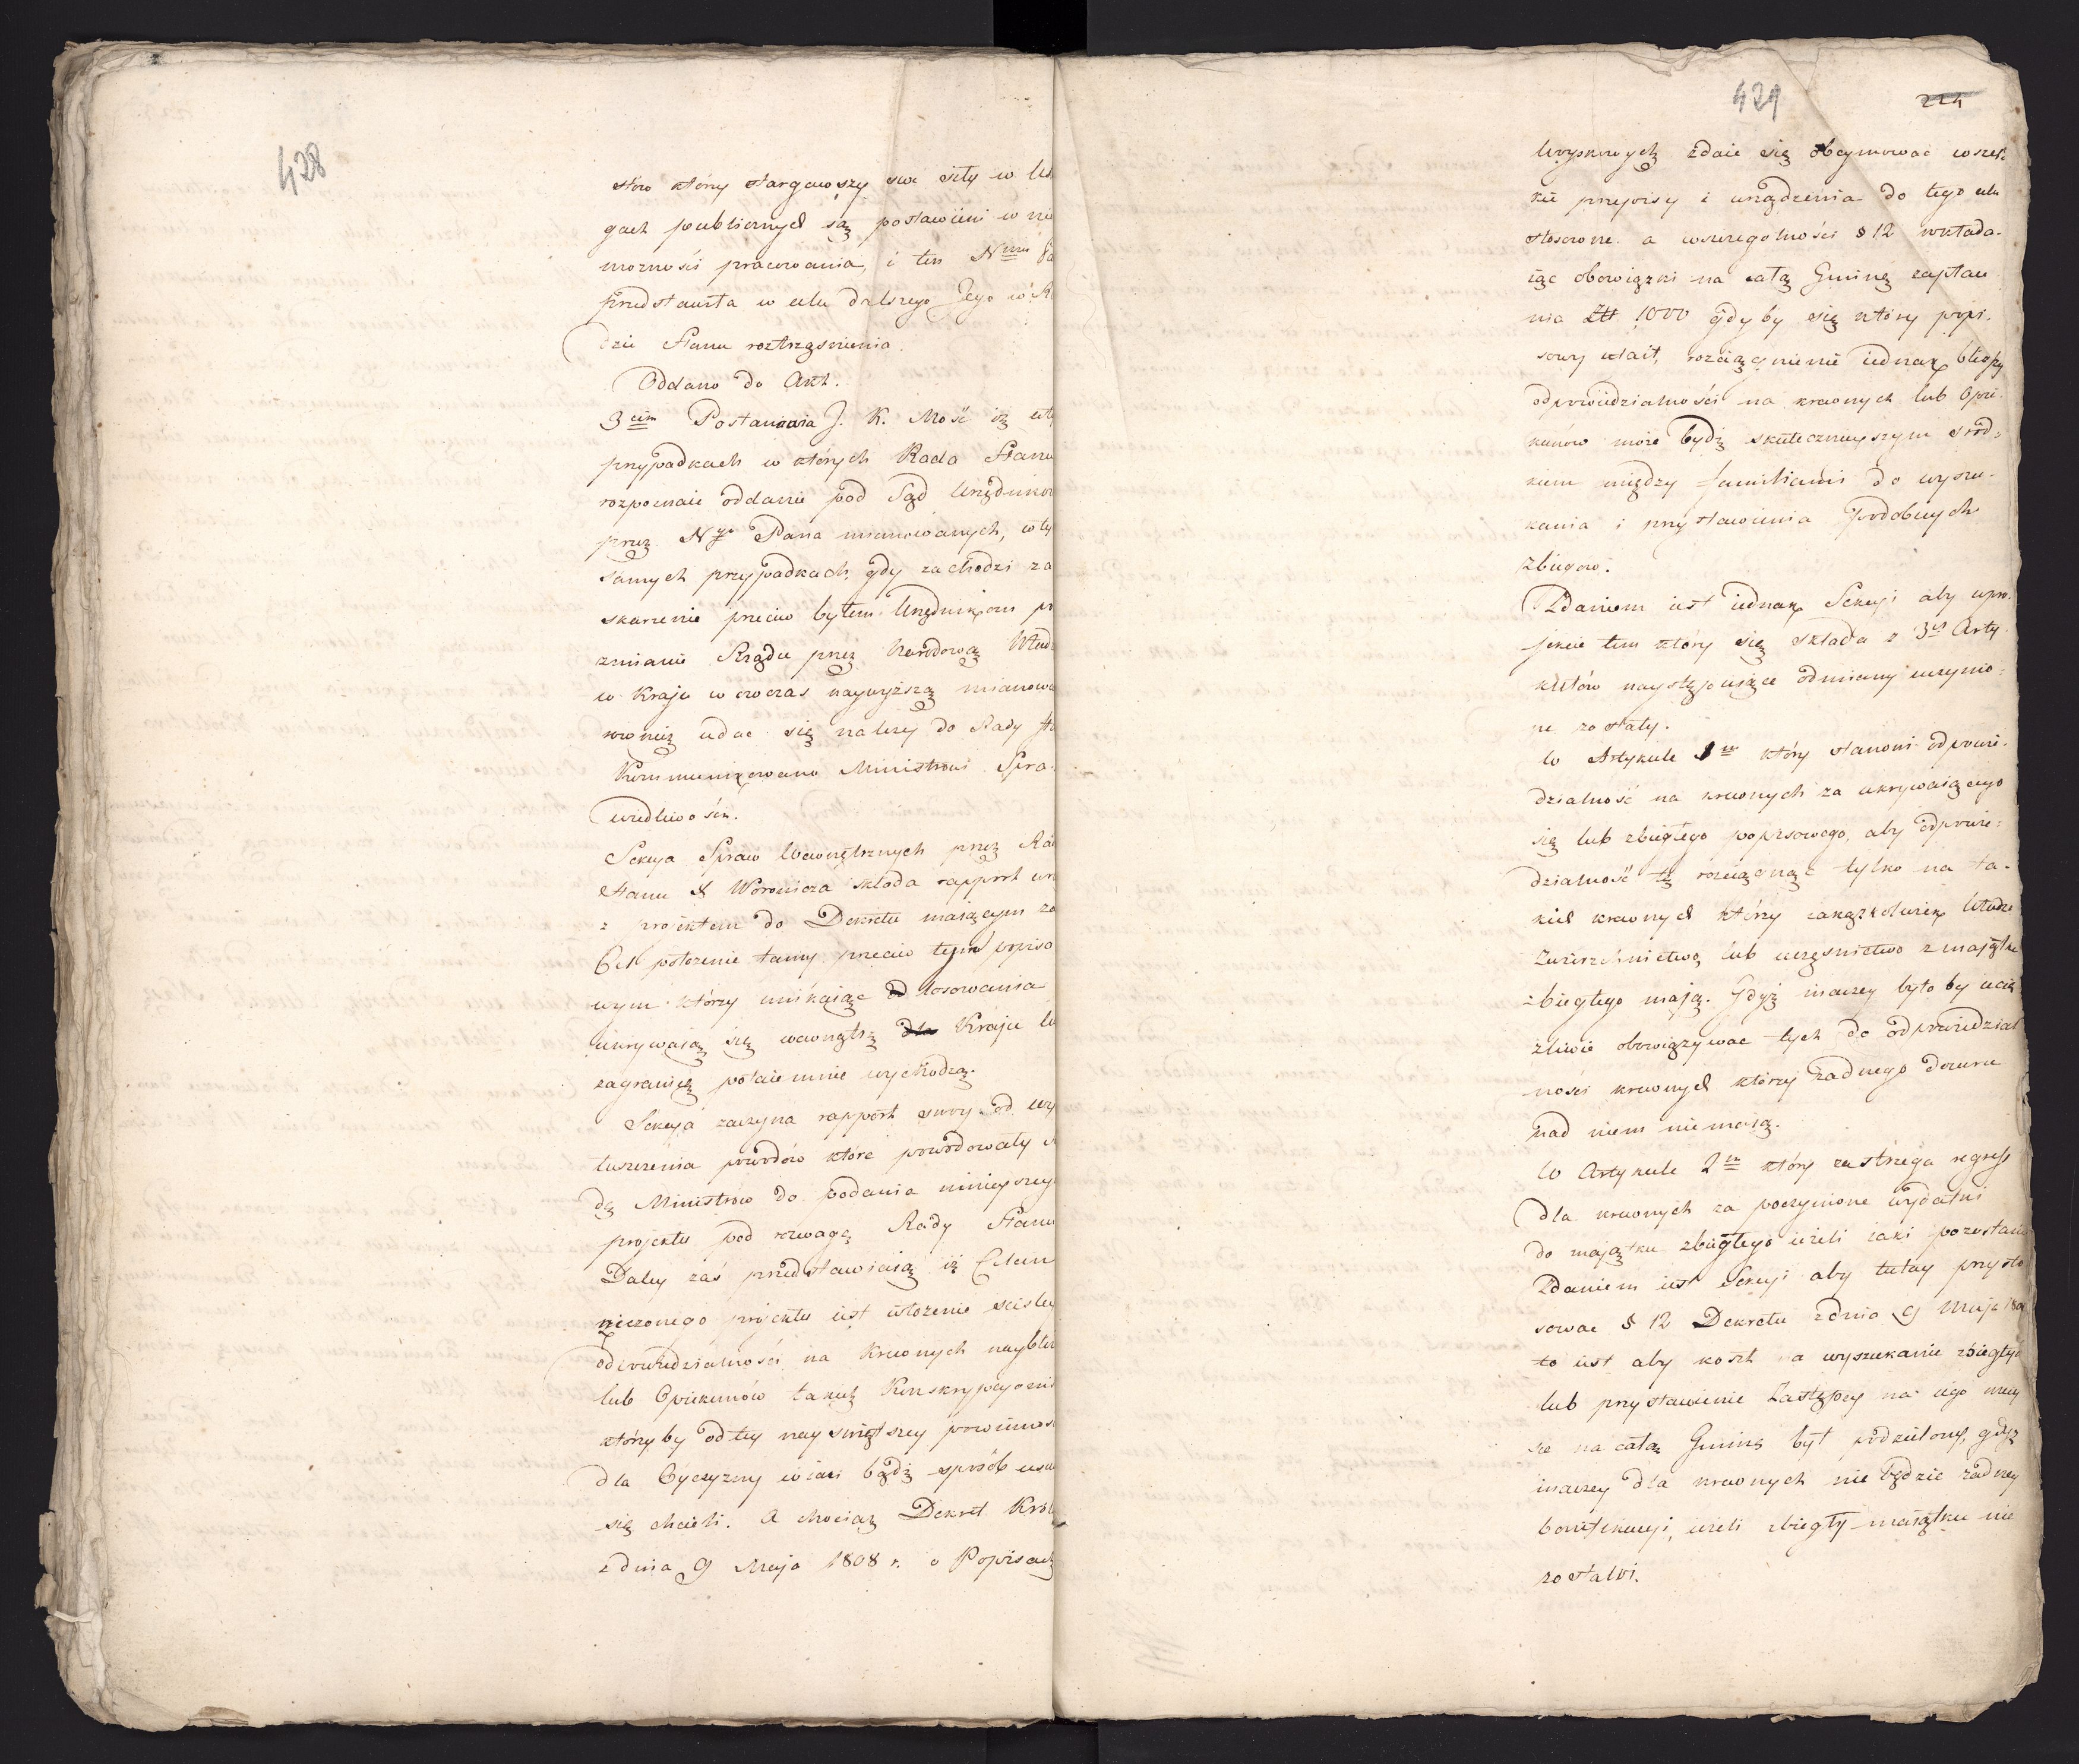 428
stów który stargawszy swe siły w Us
gach publicznych są postawieni w nie
możności pracowania, i ten N<sup>mu</sup> Pa
przedstawia w celu dalszego Jego w R
dzie Stanu roztrząśnienia.
Oddano do Akt.
3<sup>cim</sup> Postanawia J. K. Mość iż w ty
przypadkach w których Rada Stanu
rozpoznaie oddanie pod Sąd Urzędnikow
przez N<sup>go</sup> Pana mianowanych, w ty
samych przypadkach, gdy zachodzi za
skarżenie przeciw byłem Urzędnikom pr
zmianie Rządu przez Narodową Wład
w Kraju w owczas naywyższą mianowa
również udać się należy do Rady St
Kommunikowano Ministrowi Spra-
wiedliwości.
Sekcya Spraw Wewnętrznych przez Rad
Stanu X Woronicza składa rapport wr
z projektem do Dekretu maiącym za
Cel położenie tamy przeciw tym popiso
wym którzy unikaiąc od losowania
ukrywaią się wewnątrz dla Kraju lu
zagranicę potaiemnie wychodzą.
Sekcyja zaczyna rapport swóy od wy
łuszczenia powodów które powodowały R
dę Ministrów do podania ninieyszey
projektu pod rozwagę Rady Stanu
Daley zaś przedstawiaią iż Celem
rzeczonego projektu iest włożenie ścisley
odpowiedzialności na Krewnych naybliż
lub Opiekunów takich Konskrypcyonis
którzyby od tey nayświętszey powinnoś
dla Oyczyzny w iaki bądź sposób usu
się chcieli. A chociaż Dekret Król
z dnia 9 Maja 1808 r. o Popisach
429
224
Woyskowych zdaie się obeymować wszel-
kie przepisy i urządzenia do tego celu
stosowne. a w szczególności § 12 wkłada-
iąc obowiązki na całą Gminę zapłace
nia Złt 1000 gdyby się który popi-
sowy utaił, rozciągnienie iednak bliższy
odpowiedzialności na krewnych lub Opie-
kunów może bydź skutecznieyszym srod-
kiem między familiami do wyszu-
kania i przystawienia podobnych
zbiegow.
Zdaniem iest iednak Sekcyi aby w pro-
jekcie tem który się składa z 3<sup>ch</sup> Arty-
kułów następuiące odmiany uczynio-
ne zostały.
W Artykule 1<sup>m</sup> który stanowi odpowie-
dzialność na krewnych za ukrywaiącego
się lub zbiegłego popisowego, aby odpowie-
dzialność tę rozciągnąć tylko na ta-
kich krewnych którzy iakążkolwiek Władzę
Zwierzchnictwo, lub uczęsnictwo z majątku
zbiegłego mają. Gdyż inaczey byłoby ucią
żliwie obowiązywać tych do odpowiedzial
ności krewnych którzy żadnego dozoru
nad niem niemaią.
W Artykule 2<sup>m</sup> który zastrzega regress
dla krewnych za poczynione wydatki
do majątku zbiegłego ieżeli iaki pozostaw
Zdaniem iest Sekcyi aby tutay przysto
sować § 12 Dekretu z dnia 9 Maja 1808
to iest aby koszt na wyszukanie zbiegłego
lub przystawienie Zastępcy na iego miey
sce na całą Gminę był podzielony, gdyż
inaczey dla krewnych nie będzie żadney
bonifikacyi, ieżeli zbiegły maiątku nie
zostawi.